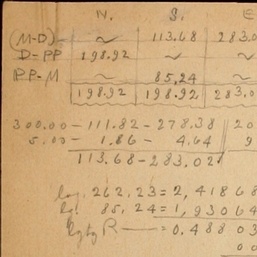 N. S. E
(M-D) ~ 113.68 283.0
D-PP 198.92 ~ ~
PP-M ~ 85.24 ~
198.92 198.92 283.0
300.00 - 111.82 - 278.38 20
5.00 - 1.86 - 4.64 9
113.68 - 283.02
log. 262.23 = 2,41868
lg. 85,24 = 1,93064
lg tg R = 0.48803
00